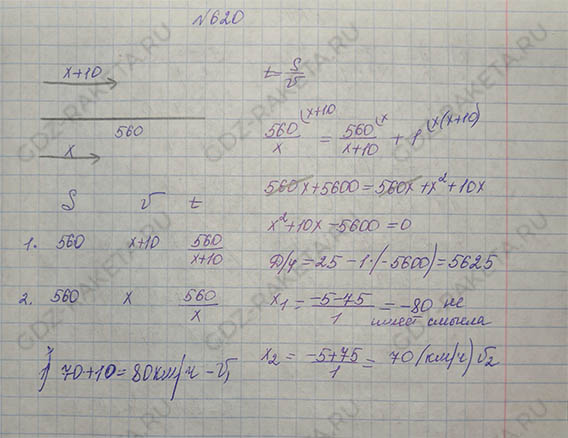 №620
x+10
560
x
S v t
1. 560 x+10 560/(x+10)
2. 560 x 560/x
1) 70+10=80км/ч – v₁
t=S/v
560/x (x+10 = 560/(x+10) (x + 1 (x(x+10)
560x+5600=560x+x²+10x
x²+10x–5600=0
Д/4=25–1·(–5600)=5625
x₁ = (–5–75)/1 = –80 не
имеет смысла
x₂ = (–5+75)/1 = 70 (км/ч) v₂
GDZ-RAKETA.RU